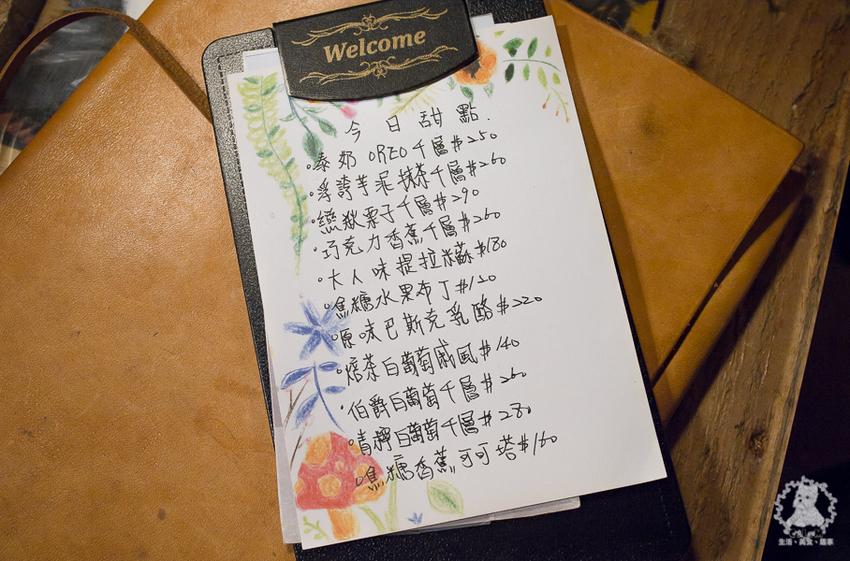 Welcome
今日甜點.
·泰奶OREO千層$250
·浮誇芋泥抹茶千層$260
·戀秋栗子千層$290
·巧克力香蕉千層$260
·大人味提拉米蘇$180
·焦糖水果布丁$120
·原味巴斯克乳酪$220
·焙茶白葡萄戚風$140
·伯爵白葡萄千層$260
·青檸白葡萄千層$280
·焦糖香蕉可可塔$160
生活、美食、趣事